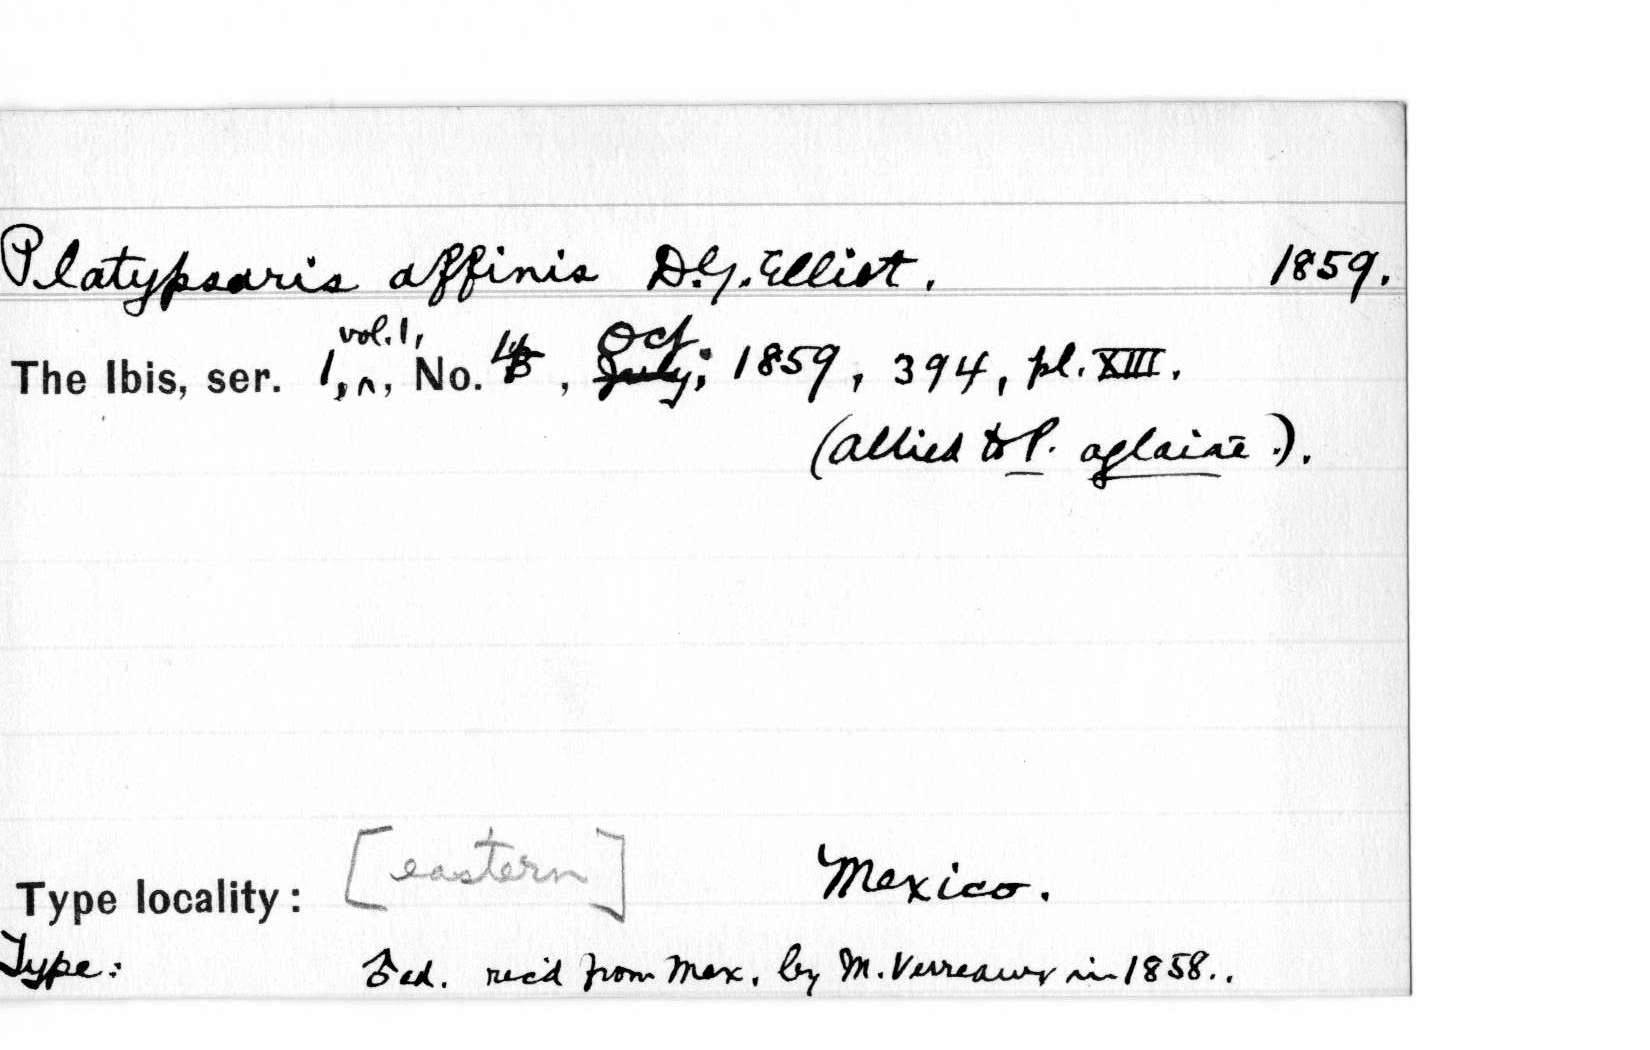 Platypsaris affinis D.G. Elliot. 1859.
The Ibis, ser. 1, vol. 1, No. 4, Oct. 1859, 394, pl. XIII.
(allied to P. aglaiae.).
Type locality: [eastern] Mexico.
Type: ♂ ad. rec'd from Mex. by M. Verreaux in 1858..